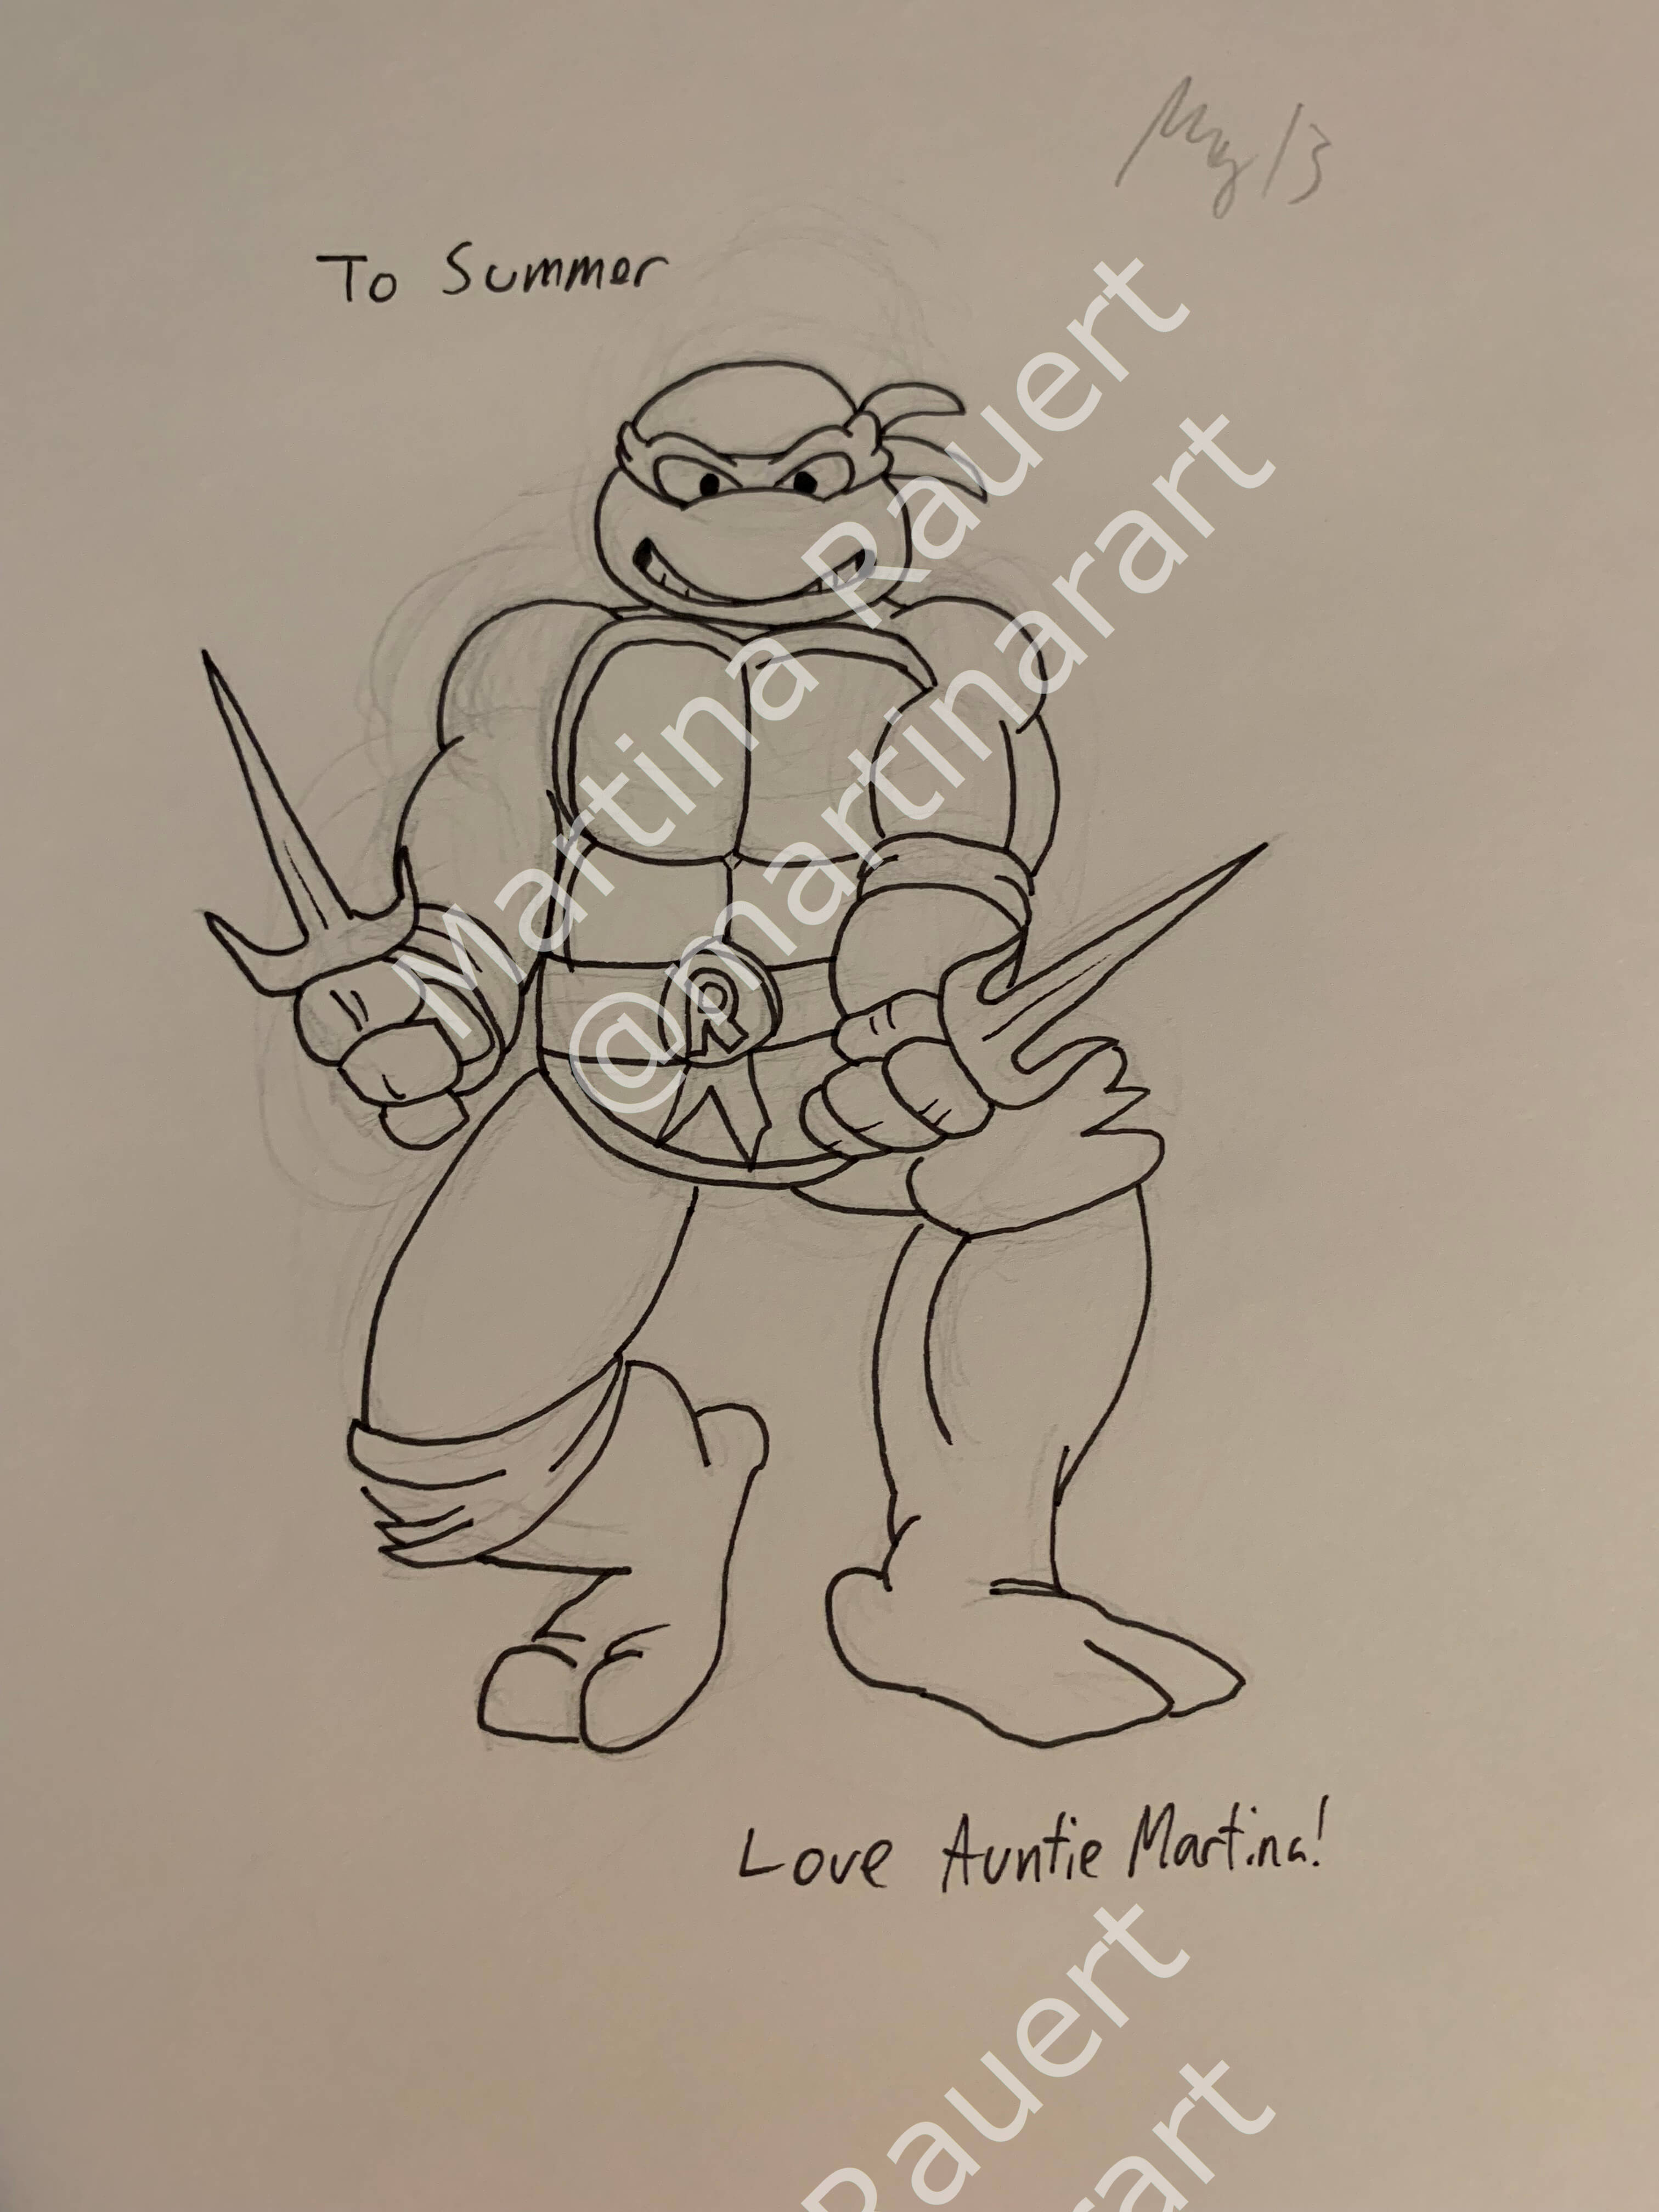 To Summer
Martina Rauert
@martinarart
R
Love Auntie Martina!
Rauert
art